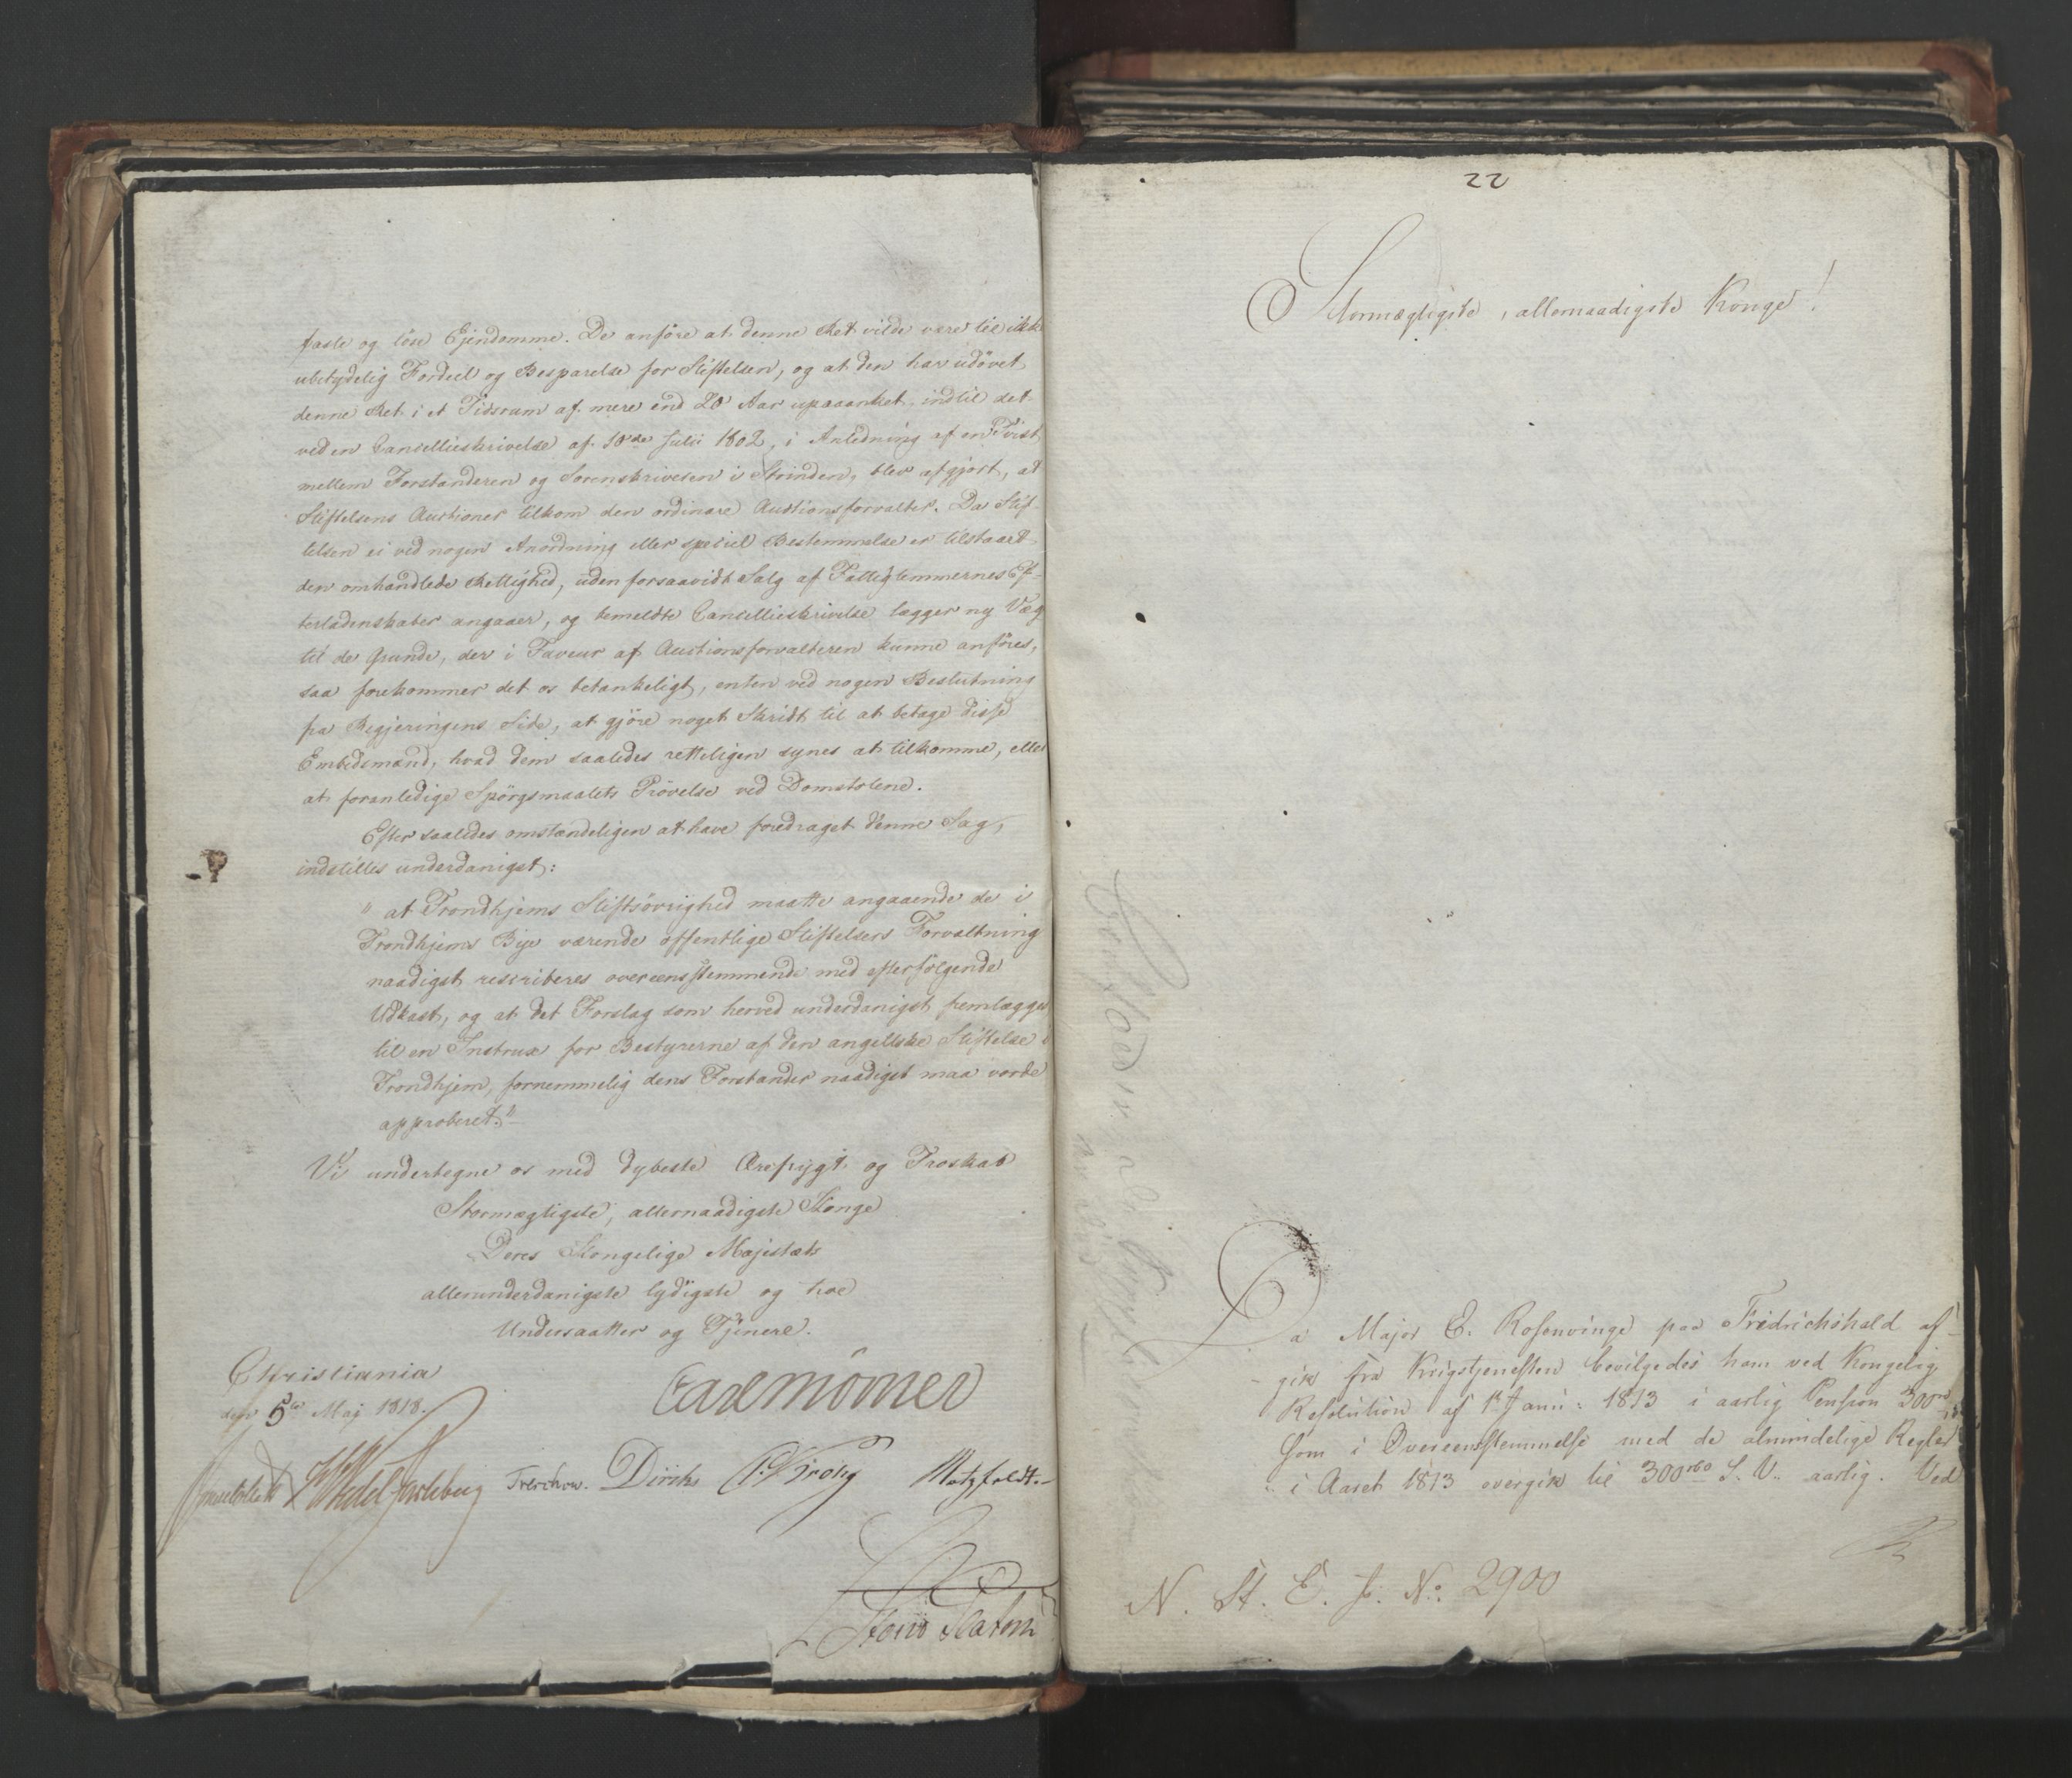 faste og löse Ejendomme. De anföre at denne Ret vilde være til ikke
ubetydelig Fordeel og Besparelse for Stiftelsen, og at den har udövet
denne Ret i et Tidsrum af mere end 20 Aar upaaanket, indtil det
ved en Cancellieskrivelse af 10de Julii 1802, i Anledning af en Tvist
mellem Forstanderen og Sorenskriveren i Strinden, blev afgjort, at
Stiftelsens Auctioner tilkom den ordinære Auctionsforvalter. Da Stif-
telsen ei ved nogen Anordning eller speciel Bestemmelse er tilstaaet
den omhandlede Rettighed, uden forsaavidt Salg af Fattiglemmernes Ef-
terladenskaber angaaer, og bemeldte Cancellieskrivelse lægger ny Vægt
til de Grunde, der i Faveur af Auctionsforvalteren kunne anföres,
saa forekommer det os betænkeligt, enten ved nogen Beslutning
fra Regjeringens Side, at gjöre noget Skridt til at betage disse
Embedsmænd, hvad dem saaledes retteligen synes at tilkomme, eller
at foranledige Spörgsmaalets Prövelse ved Domstolene.
Efter saaledes omstændeligen at have foredraget denne Sag,
indstilles underdanigst:
" at Trondhjems Stiftsövrighed maatte angaaende de i
Trondhjems Bye værende offentlige Stiftelsers Forvaltning
naadigst rescriberes overeensstemmende med efterfölgende
Udkast, og at det Forslag som herved underdanigst fremlægges
til en Instrux for Bestyrerne af den angellske Stiftelse i
Trondhjem, fornemmelig dens Forstander naadigst maa vorde
approberet."
Vi undertegne os med dybeste Ærefrygt og Troskab
Stormægtigste, allernaadigste Konge
Deres Kongelige Majestæts
allerunderdanigste lydigste og troe
Undersaatter og Tjenere.
Christiania
den 5te Maj 1818.
Carl Mörner
Wedel Jarlsberg Treschow. Diriks C. Krohg Motzfeldt.
22
Stormægtigste, allernaadigste Konge!
Da Major E. Rosenvinge paa Fridrichshald af-
gik fra Krigstjenesten bevilgedes ham ved Kongelig
Resolution af 1ste Janu: 1813 i aarlig Pension 300rd,
som i Overeensstemmelse med de almindelige Regler
i Aaret 1813 overgik til 300rbd S. V. aarlig. Ved
N. St. E. J. No: 2900